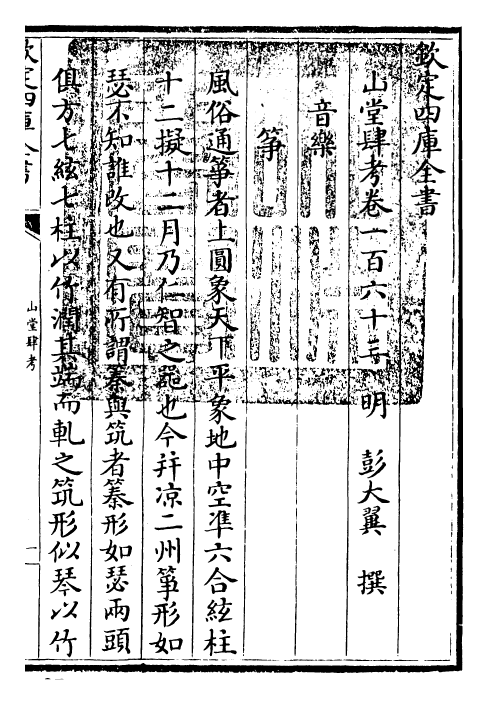 欽定四庫全書
山堂肆考卷一百六十二 明 彭大翼 撰
音樂
筝
風俗通筝者上圓象天下平象地中空凖六合絃柱
十二擬十二月乃仁智之器也今并凉二州筝形如
瑟不知誰改也又有所謂䈖與筑者䈖形如瑟兩頭
俱方七絃七柱以竹潤其端而軋之筑形似琴以竹
欽定四庫全書
山堂肆考
一